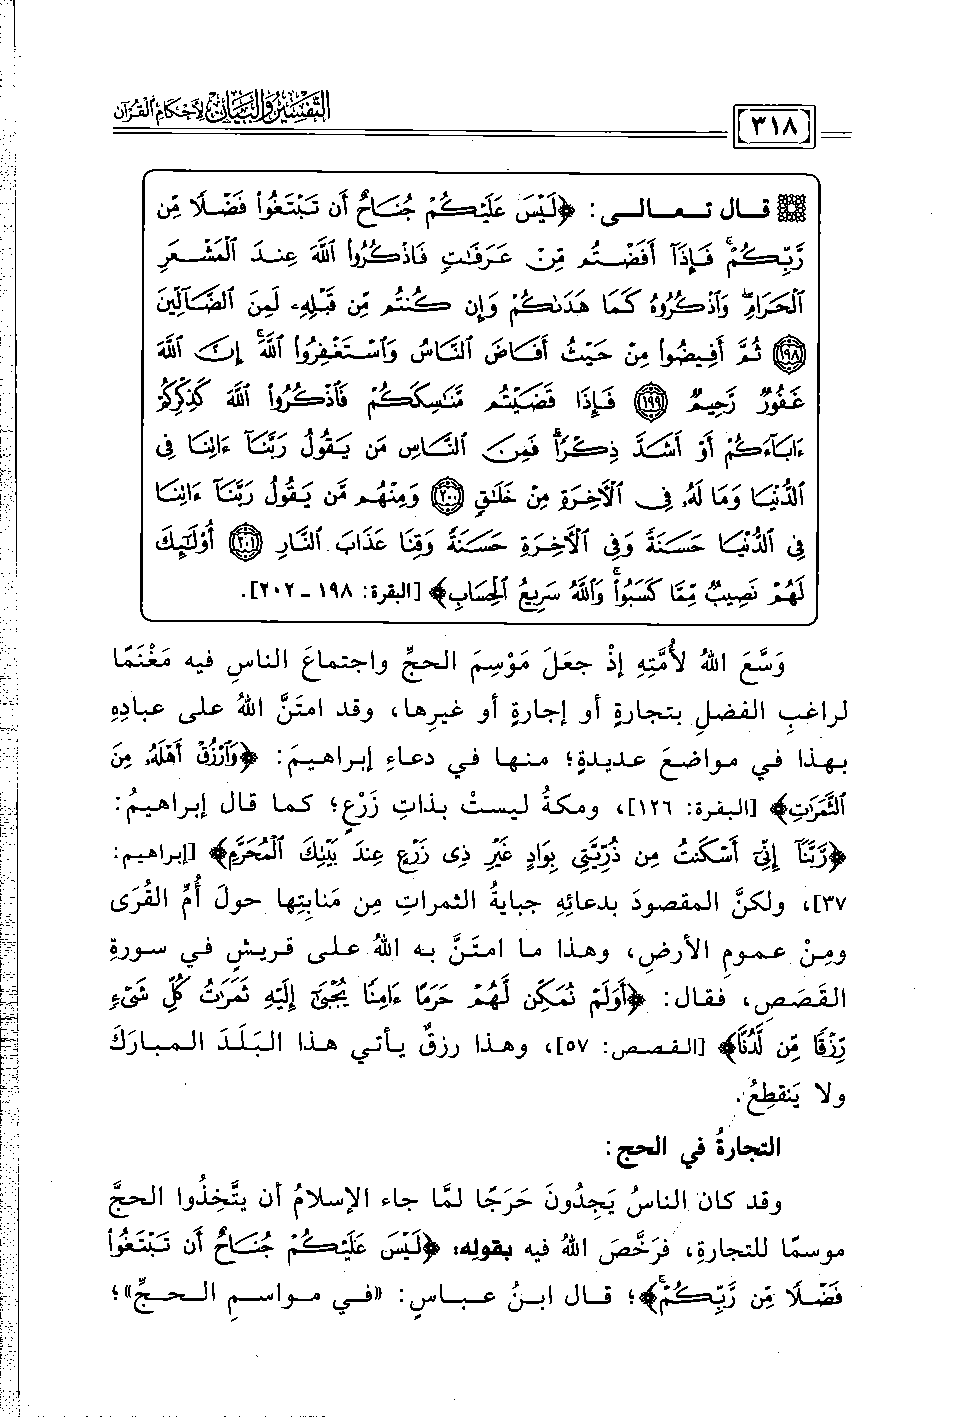 ٣١٨
التفسير والبيان لأحكام القرآن
قال تعالى: ﴿لَيْسَ عَلَيْكُمْ جُنَاحٌ أَن تَبْتَغُوا۟ فَضْلًا مِّن
رَّبِّكُمْ ۚ فَإِذَآ أَفَضْتُم مِّنْ عَرَفَٰتٍ فَٱذْكُرُوا۟ ٱللَّهَ عِندَ ٱلْمَشْعَرِ
ٱلْحَرَامِ ۖ وَٱذْكُرُوهُ كَمَا هَدَىٰكُمْ وَإِن كُنتُم مِّن قَبْلِهِۦ لَمِنَ ٱلضَّآلِّينَ
١٩٨ ثُمَّ أَفِيضُوا۟ مِنْ حَيْثُ أَفَاضَ ٱلنَّاسُ وَٱسْتَغْفِرُوا۟ ٱللَّهَ ۚ إِنَّ ٱللَّهَ
غَفُورٌ رَّحِيمٌ ١٩٩ فَإِذَا قَضَيْتُم مَّنَٰسِكَكُمْ فَٱذْكُرُوا۟ ٱللَّهَ كَذِكْرِكُمْ
ءَابَآءَكُمْ أَوْ أَشَدَّ ذِكْرًا ۗ فَمِنَ ٱلنَّاسِ مَن يَقُولُ رَبَّنَآ ءَاتِنَا فِى
ٱلدُّنْيَا وَمَا لَهُۥ فِى ٱلْءَاخِرَةِ مِنْ خَلَٰقٍ ٢٠٠ وَمِنْهُم مَّن يَقُولُ رَبَّنَآ ءَاتِنَا
فِى ٱلدُّنْيَا حَسَنَةً وَفِى ٱلْءَاخِرَةِ حَسَنَةً وَقِنَا عَذَابَ ٱلنَّارِ ٢٠١ أُو۟لَٰٓئِكَ
لَهُمْ نَصِيبٌ مِّمَّا كَسَبُوا۟ ۚ وَٱللَّهُ سَرِيعُ ٱلْحِسَابِ﴾ [البقرة: ١٩٨ - ٢٠٢].
وَسَّعَ اللهُ لأُمَّتِهِ إذْ جعَلَ مَوْسِمَ الحجِّ واجتماعَ الناسِ فيه مَغْنَمًا
لراغبِ الفضلِ بتجارةٍ أو إجارةٍ أو غيرِها، وقد امتَنَّ اللهُ على عبادِهِ
بهذا في مواضعَ عديدةٍ؛ منها في دعاءِ إبراهيمَ: ﴿وَٱرْزُقْ أَهْلَهُۥ مِنَ
ٱلثَّمَرَٰتِ﴾ [البقرة: ١٢٦]، ومكةُ ليستْ بذاتِ زَرْعٍ؛ كما قال إبراهيمُ:
﴿رَّبَّنَآ إِنِّىٓ أَسْكَنتُ مِن ذُرِّيَّتِى بِوَادٍ غَيْرِ ذِى زَرْعٍ عِندَ بَيْتِكَ ٱلْمُحَرَّمِ﴾ [إبراهيم:
٣٧]، ولكنَّ المقصودَ بدعائِهِ جبايةُ الثمراتِ مِن مَنابِتِها حولَ أُمِّ القُرَى
ومِنْ عمومِ الأرضِ، وهذا ما امتَنَّ به اللهُ على قريشٍ في سورةِ
القَصَصِ، فقال: ﴿أَوَلَمْ نُمَكِّن لَّهُمْ حَرَمًا ءَامِنًا يُجْبَىٰٓ إِلَيْهِ ثَمَرَٰتُ كُلِّ شَىْءٍ
رِّزْقًا مِّن لَّدُنَّا﴾ [القصص: ٥٧]، وهذا رزقٌ يأتي هذا البَلَدَ المبارَكَ
ولا يَنقطِعُ.
التجارةُ في الحج:
وقد كان الناسُ يَجِدُونَ حَرَجًا لمَّا جاء الإسلامُ أن يتَّخِذُوا الحجَّ
موسمًا للتجارةِ، فرَخَّصَ اللهُ فيه بقوله: ﴿لَيْسَ عَلَيْكُمْ جُنَاحٌ أَن تَبْتَغُوا۟
فَضْلًا مِّن رَّبِّكُمْ﴾؛ قال ابنُ عباسٍ: «في مواسمِ الحجِّ»؛